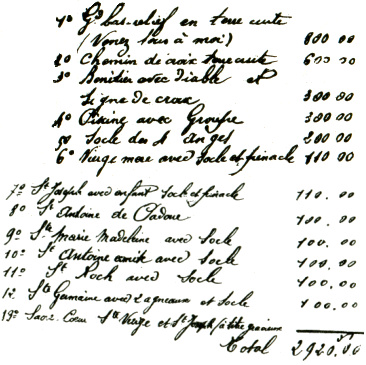 1º Gd bas-relief en terre cuite
(Venez tous à moi) 800 00
2º Chemin de croix terre cuite 600 00
3º Benitier avec Diable et
Signe de croix 300 00
4º Piscine avec Groupe 300 00
5º Socle des 4 Anges 200 00
6º Vierge mere avec Socle et pinacle 110 00
7º St Joseph avec enfant Socle et pinacle 110.00
8º St Antoine de Padoue 100.00
9º Ste Marie Madeleine avec Socle 100.00
10º St Antoine ermite avec Socle 100.00
11º St Roch avec Socle 100.00
12 Ste Germaine avec 2 agneaux et Socle 100.00
13º Coeur Ste Vierge et St Joseph (à titre gracieux
Total 2920.00